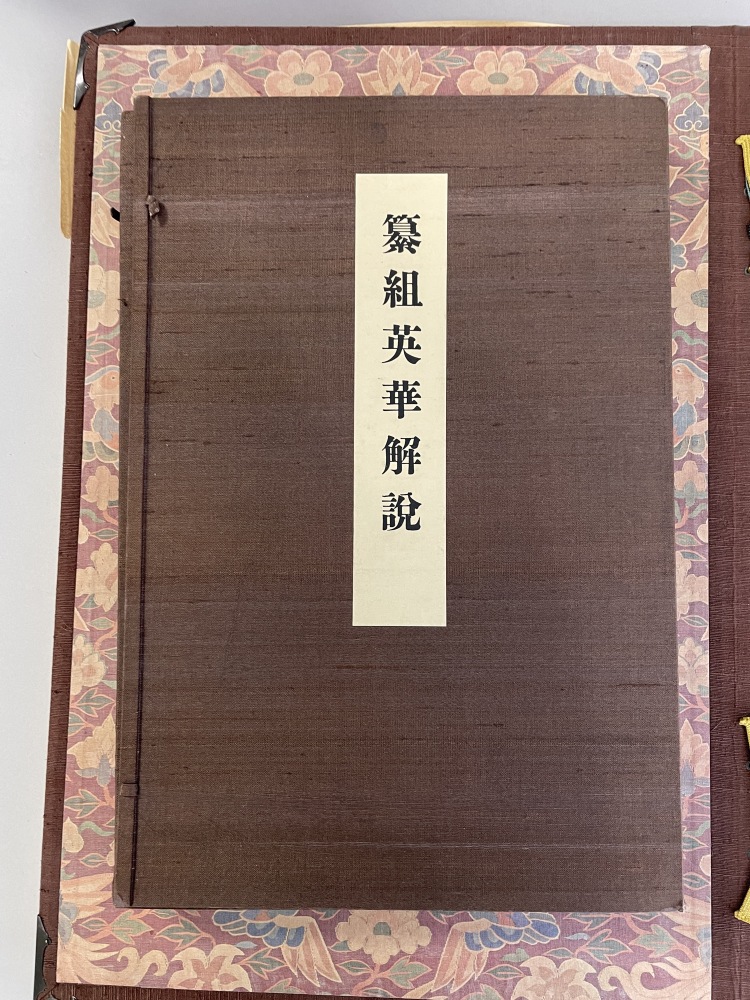 纂組英華解說